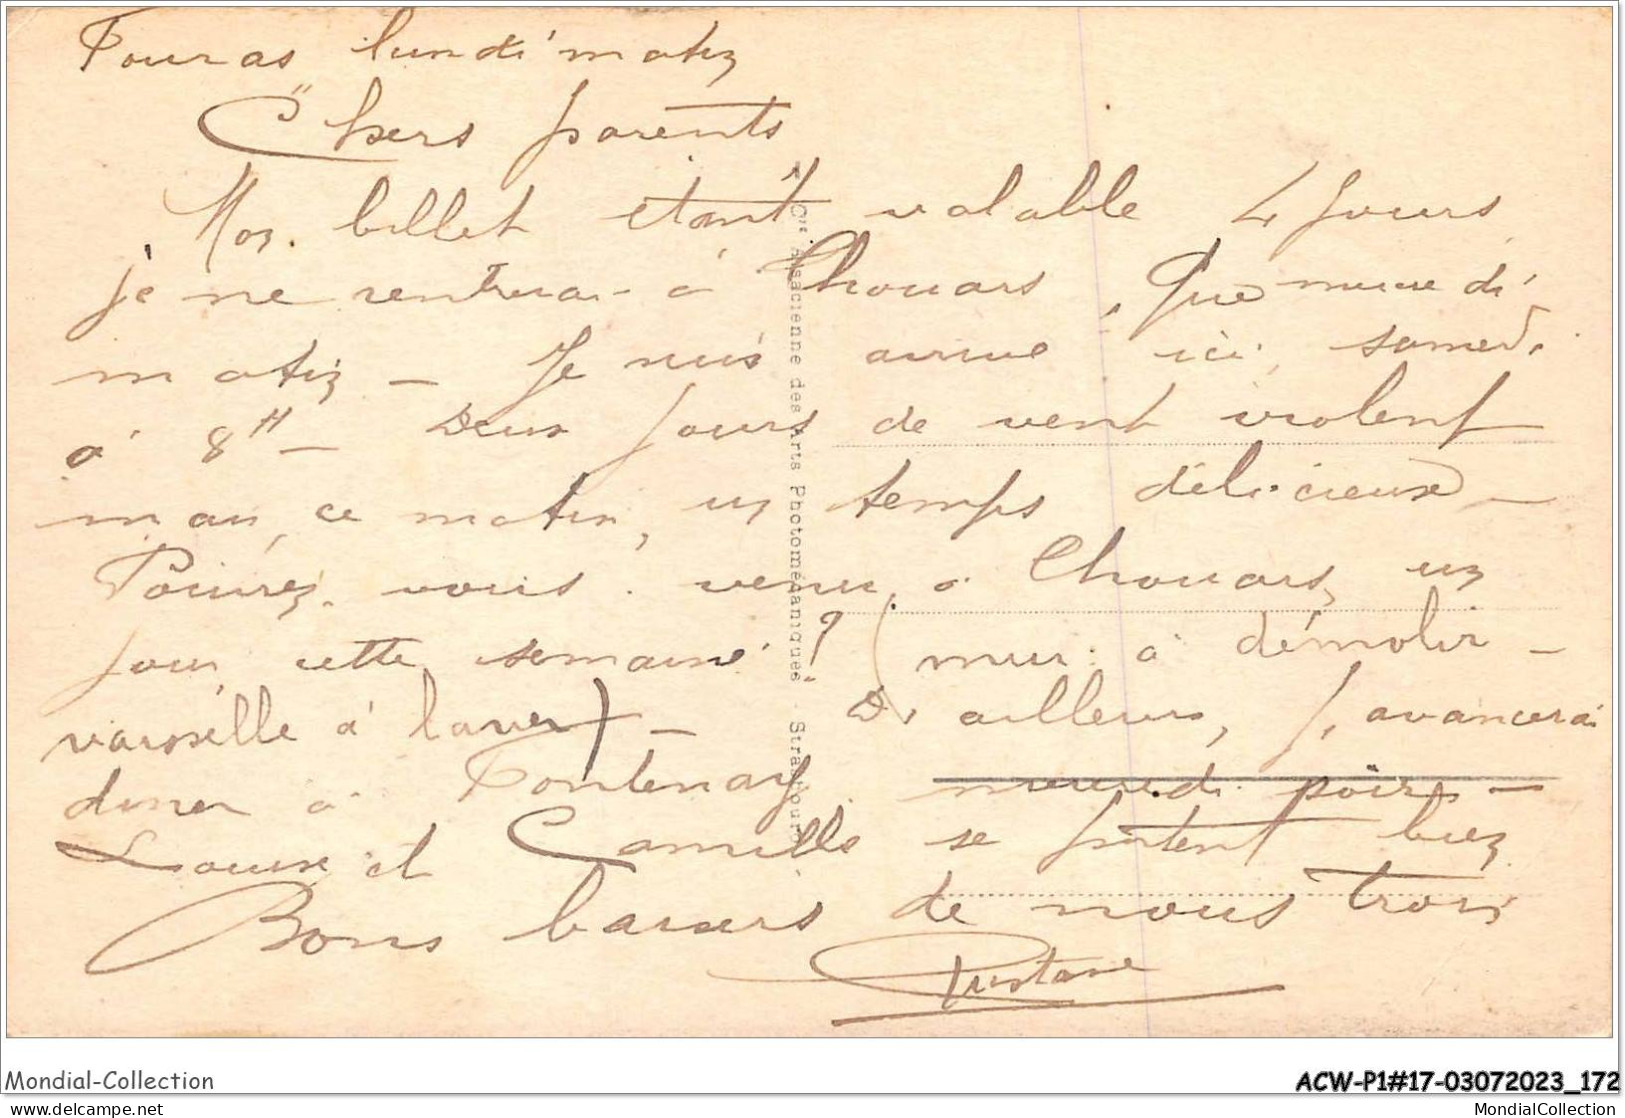 Fouras lundi matin
Chers parents
Mon billet étant valable 4 jours
je ne rentrerai à Thouars, que mercredi
matin — Je suis arrivé ici, samedi
à 8H — Deux jours de vent violent
mais, ce matin, un temps délicieux —
Pourrez vous venir à Thouars, un
jour cette semaine ? (mur à démolir —
vaisselle à laver) — D'ailleurs, j'avancerai
diner à Fontenay mercredi soir —
Louise et Camille se portent bien
Bons baisers de nous trois
Gustave
Cie Alsacienne des Arts Photomécaniques - Strasbourg
Mondial-Collection
ACW-P1#17-03072023_172
mondial-collection.delcampe.net
MondialCollection